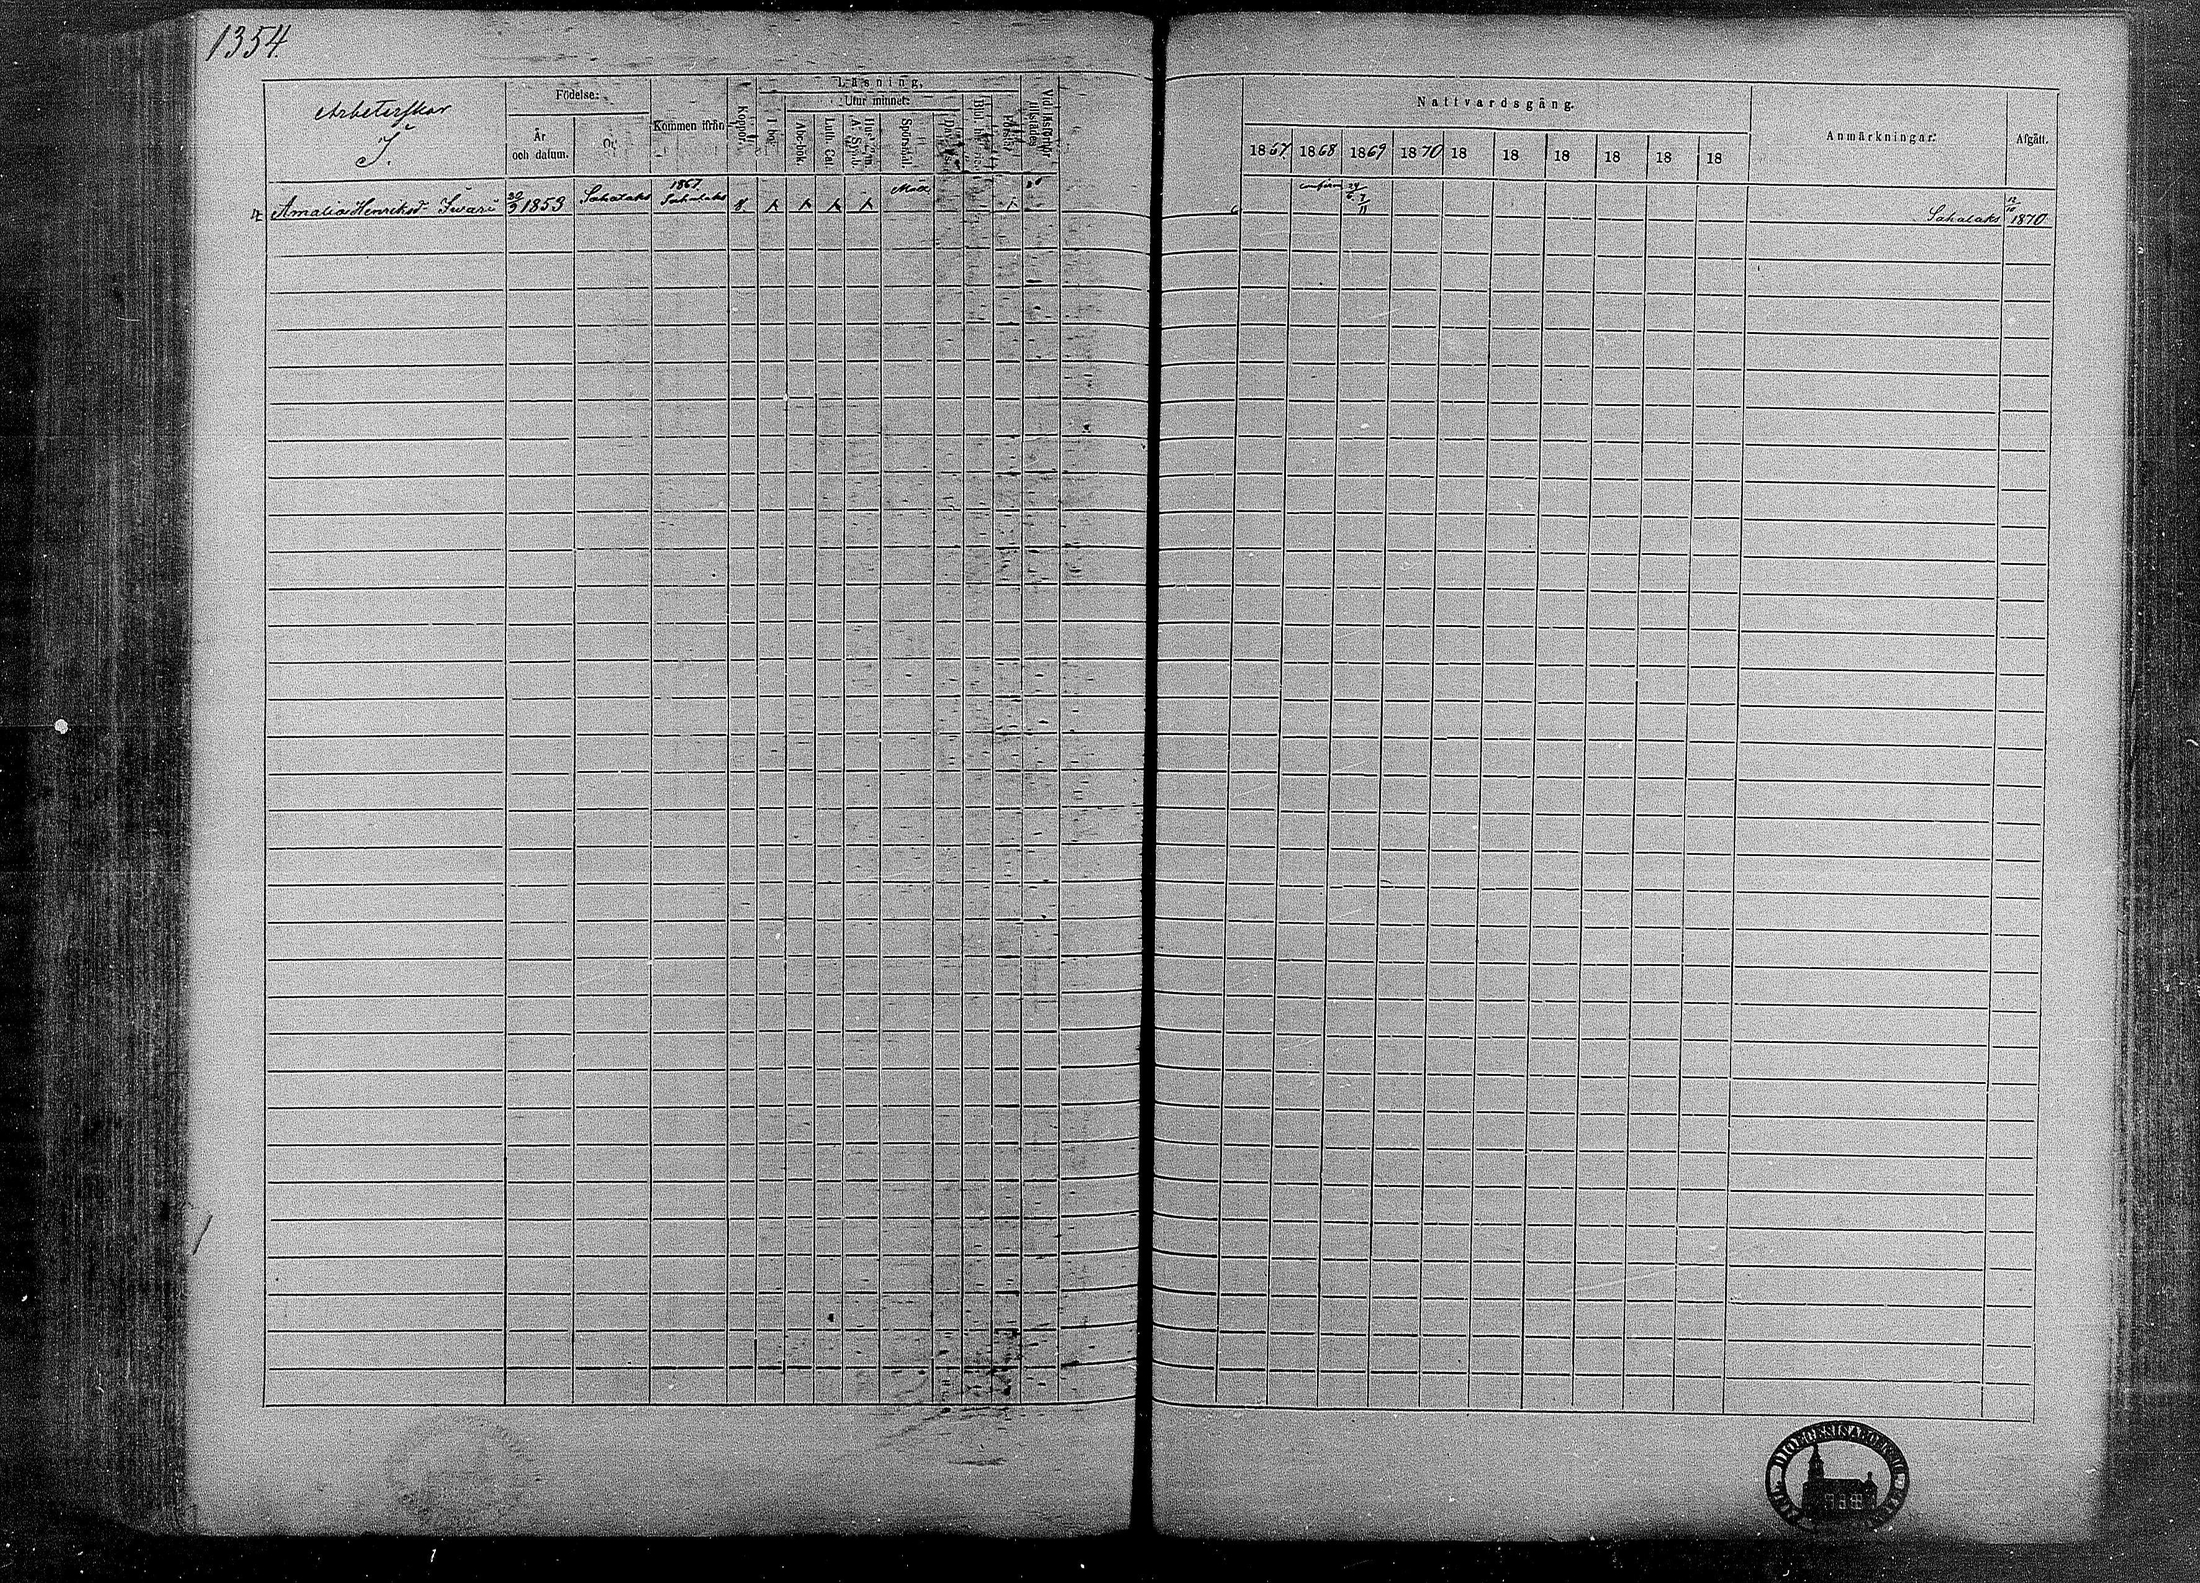 1354.
Arbeterskor
I.
Födelse:
År
och datum.
Ort
Kommen ifrån
Koppor.
Läsning,
I bok.
Utur minnet:
Abc-bok.
Luth. Cat.
Spörsmål.
Nattvardsgång.
1867. 1868 1869 1870 18 18 18 18 18 18
Anmärkningar.
Afgått.
Amalia Henriksd. Iivari
1853
Sahalaks
1867
Sahalaks
confirm 29/6
7/11
Sahalaks
1870